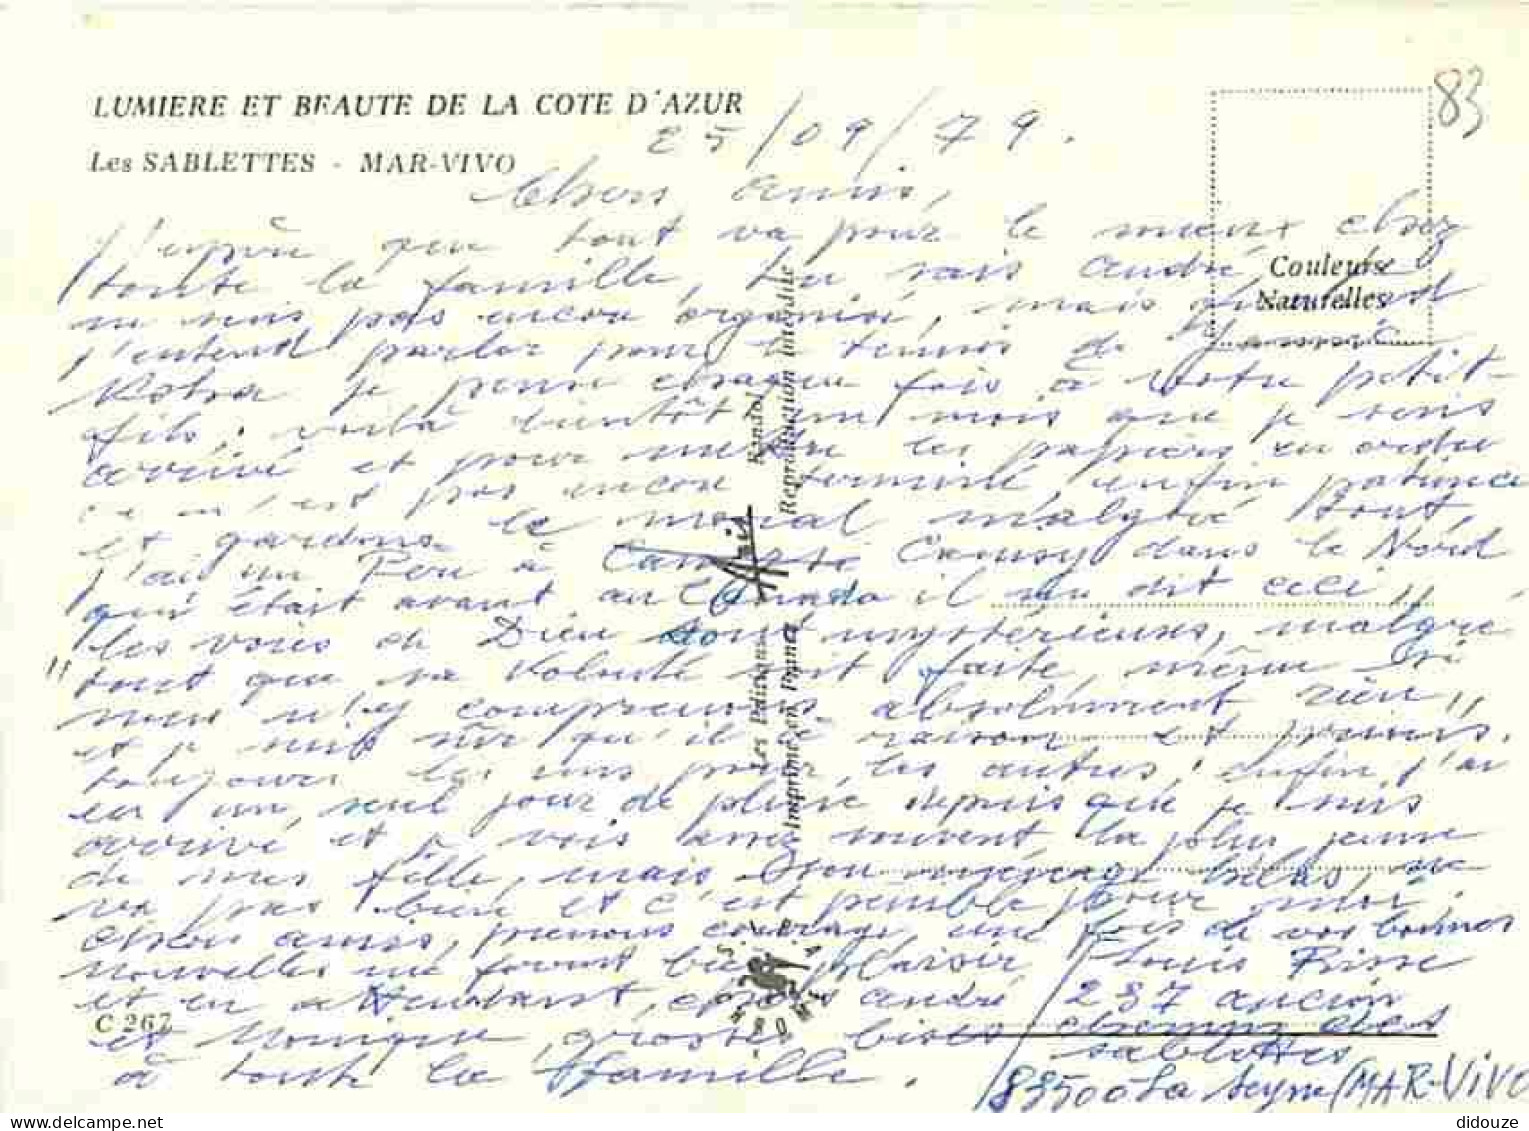 LUMIERE ET BEAUTE DE LA COTE D'AZUR
83
25/09/79.
Les SABLETTES - MAR-VIVO
Chers amis,
J'espère que tout va pour le mieux chez
toute la famille, tu sais André je
ne suis pas encore organisé, mais
j'entend parler pour le tennis de
je pense chaque fois à votre petit-
fils, voilà bientôt un mois que je suis
arrivé et pour mettre les papiers en ordre
ce n'est pas encore terminé, enfin patience
et gardons le moral malgré tout,
j'ai un Peu à dans le Nord
qui était avant au Canada il me dit ceci "
les voies de Dieu sont mystérieuses, malgré
" tout que sa volonté soit faite, même si
nous n'y comprenons absolument rien "
et je suis sûr qu'il a raison et prions.
toujours les uns pour les autres, enfin j'ai
eu un seul jour de pluie depuis que je suis
arrivé et je vois assez souvent la plus jeune
de mes fille, mais son ménage hélas, ne
va pas bien et c'est penible pour moi,
chers amis, prenons courage, une fois de vos bonnes
nouvelles me feront bien plaisir
et en attendant, chers andré
et Monique, grosses bises
à toute la famille.
Louis
237 ancien
chemin des
sablettes
83500 La Seyne (MAR-VIVO
Couleurs
Naturelles
C 267
Les Editions Aris
Imprimé en France
Reproduction interdite
didouze